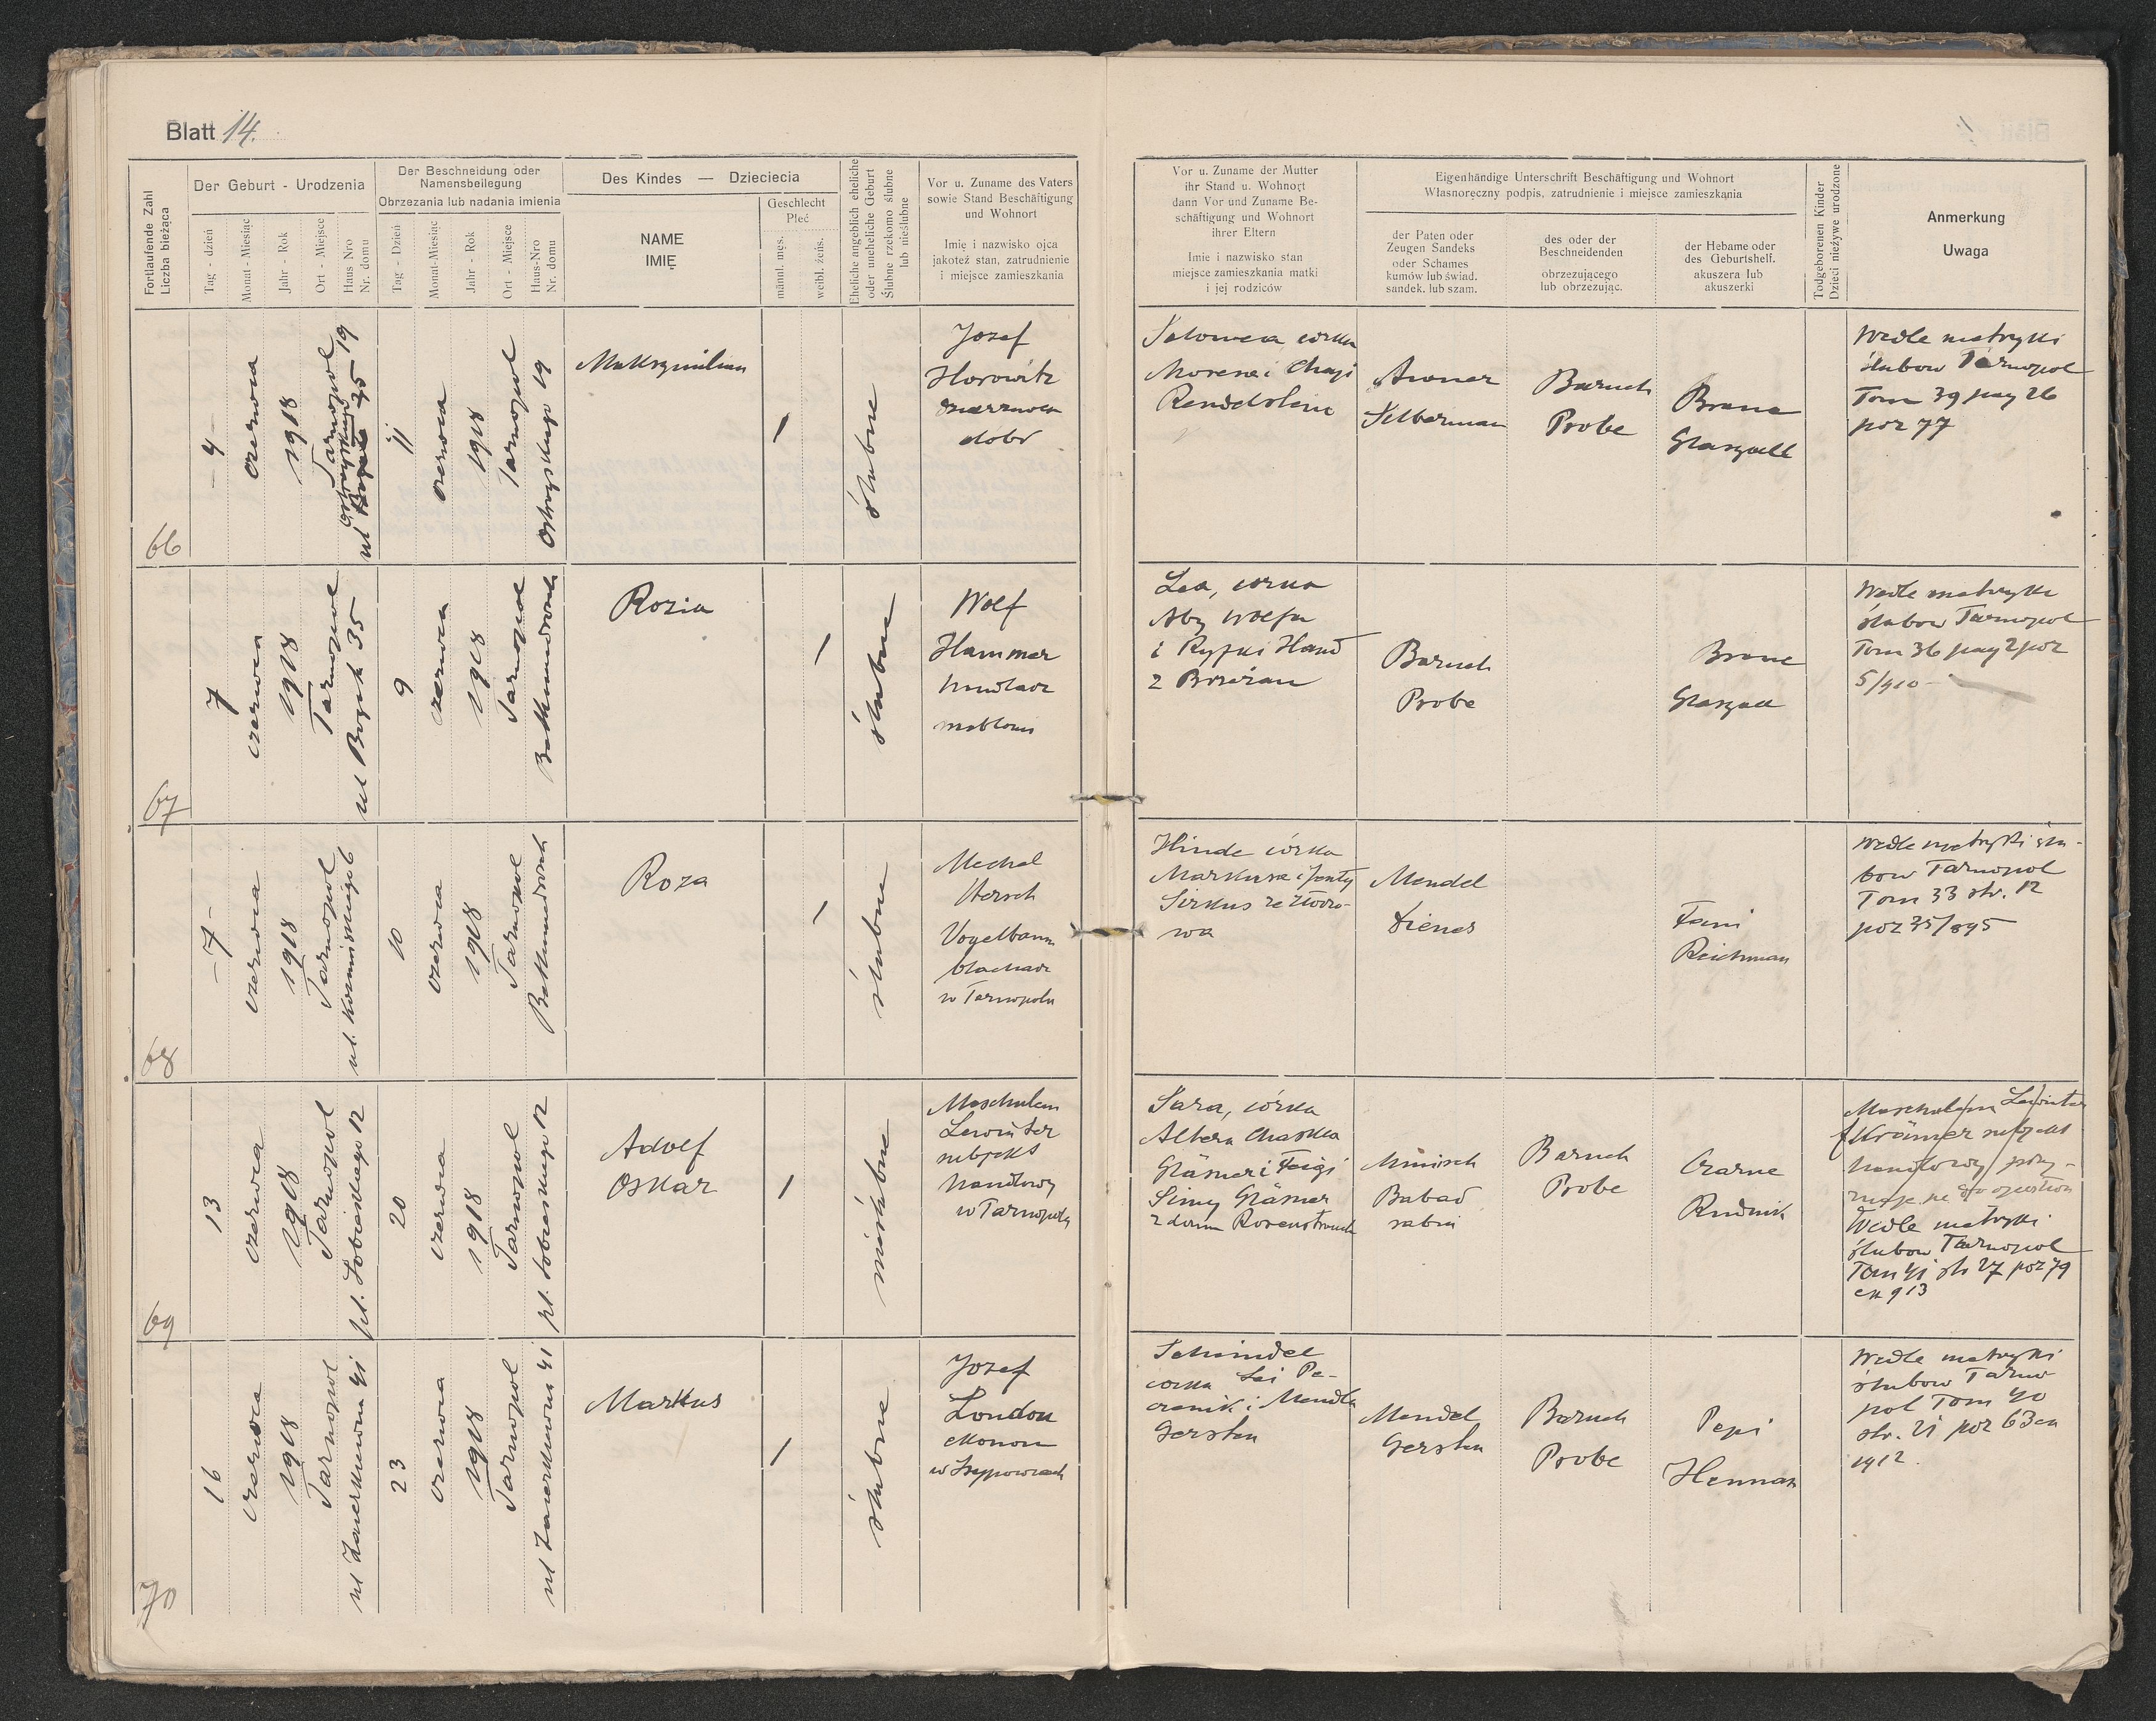 Blatt 14.
Fortlaufende Zahl
Liczba bieżąca
Der Geburt - Urodzenia
Tag - dzień
Monat - Miesiąc
Jahr - Rok
Ort - Miejsce
Haus Nro
Nr. domu
Der Beschneidung oder
Namensbeilegung
Obrzezania lub nadania imienia
Tag - Dzień
Monat-Miesiąc
Jahr - Rok
Ort - Miejsce
Haus-Nro
Nr. domu
Des Kindes — Dzieciecia
NAME
IMIĘ
Geschlecht
Płeć
männl. męs.
weibl. żeńs.
Eheliche angeblich eheliche
oder uneheliche Geburt
Ślubne rzekomo ślubne
lub nieślubne
Vor u. Zuname des Vaters
sowie Stand Beschäftigung
und Wohnort
Imię i nazwisko ojca
jakoteż stan, zatrudnienie
i miejsce zamieszkania
Vor u. Zuname der Mutter
ihr Stand u. Wohnort
dann Vor und Zuname Be-
schäftigung und Wohnort
ihrer Eltern
Imie i nazwisko stan
miejsce zamieszkania matki
i jej rodziców
Eigenhändige Unterschrift Beschäftigung und Wohnort
Własnoręczny podpis, zatrudnienie i miejsce zamieszkania
der Paten oder
Zeugen Sandeks
oder Schames
kumów lub świad.
sandek. lub szam.
des oder der
Beschneidenden
obrzezującego
lub obrzezując.
der Hebame oder
des Geburtshelf.
akuszera lub
akuszerki
Todgeborenen Kinder
Dzieci nieżywe urodzone
Anmerkung
Uwaga
66
4
czerwca
1918
Tarnopol
Ostrogskiego 19
ul
11
czerwca
1918
Tarnopol
Ostrogskiego 19
Maksymilian
1
ślubne
Jozef
Horowitz
dzierzawca
dobr
Salomea corka
Mosesa i Chaji
Rendelstein
Awner
Silberman
Baruch
Probe
Brane
Glasgall
Wedle metryki
ślubow Tarnopol
Tom 39 pag 26
poz 77
67
7
czerwca
1918
Tarnopol
ul Bogata 35
9
czerwca
1918
Tarnopol
Rozia
1
ślubne
Wolf
Hammer
Lea, corka
Aby Wolfa
i Ryfki Hand
z Brzeżan
Baruch
Probe
Brane
Glasgall
Wedle metryki
ślubow Tarnopol
Tom 36 pag 2 poz
5/910
68
7
czerwca
1918
Tarnopol
10
czerwca
1918
Tarnopol
Roza
1
ślubne
Mechel
Hersch
Vogelbaum
blacharz
w Tarnopolu
Hinde córka
Markusa i
Sirkus ze Zboro-
wa
Mendel
Dienes
Fani
Reichman
Wedle metryki ślu-
bow Tarnopol
Tom 33 str. 12
poz 75/895
69
13
czerwca
1918
Tarnopol
pl. Sobieskiego 12
20
czerwca
1918
Tarnopol
pl. Sobieskiego 12
Adolf
Oskar
1
nieślubne
Meschulem
Lewinter
subjekt
handlowy
w Tarnopolu
Sara, córka
Altera Chaskla
Gläsner i Feigi
Simy Gläsner
z domu Rosenstrauch
Babad
rabin
Baruch
Probe
Czarne
Rudnik
Meschulem Lewinter
Krämer subjekt
handlowy przy-
znaje się do ojcostwa
Wedle metryki
ślubow Tarnopol
Tom 41 str 27 poz 79
ex 913
70
16
czerwca
1918
Tarnopol
23
czerwca
1918
Tarnopol
Markus
1
ślubne
Jozef
London
ekonom
Scheindel
corka Lei Pe-
czenik i Mendla
Gersten
Mendel
Gersten
Baruch
Probe
Pepi
Herman
Wedle metryki
ślubow Tarno-
pol Tom 40
str. 21 poz 63 ex
1912.